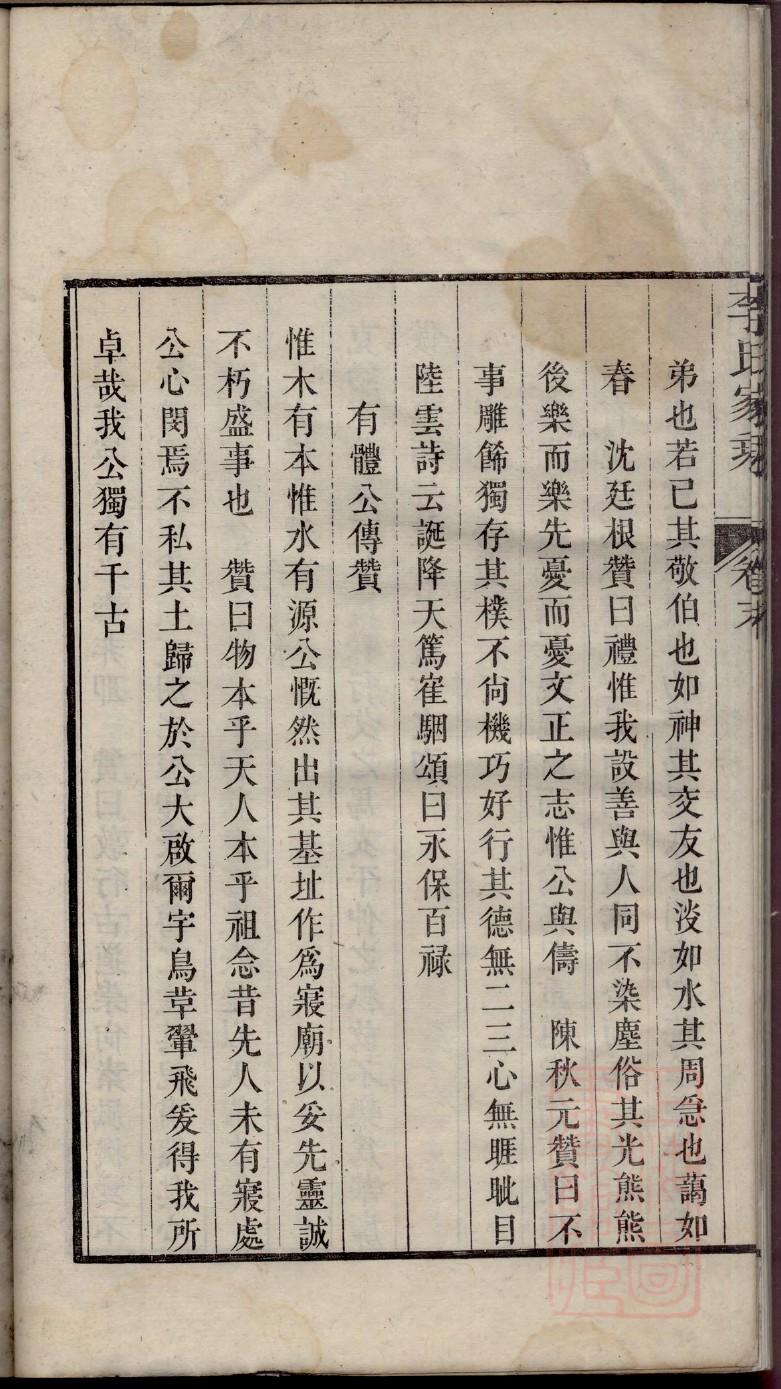 李氏家
卷末
弟也若己其敬伯也如神其交友也淡如水其周急也藹如
春　沈廷根贊曰禮惟我設善與人同不染塵俗其光熊熊
後樂而樂先憂而憂文正之志惟公與儔　陳秋元贊曰不
事雕餙獨存其樸不尙機巧好行其德無二三心無睚眦目
陸雲詩云誕降天篤崔駰頌曰永保百禄
有體公傳贊
惟木有本惟水有源公慨然出其基址作爲寢廟以妥先靈誠
不朽盛事也　贊曰物本乎天人本乎祖念昔先人未有寢處
公心閔焉不私其土歸之於公大啟爾宇鳥革翬飛爰得我所
卓哉我公獨有千古